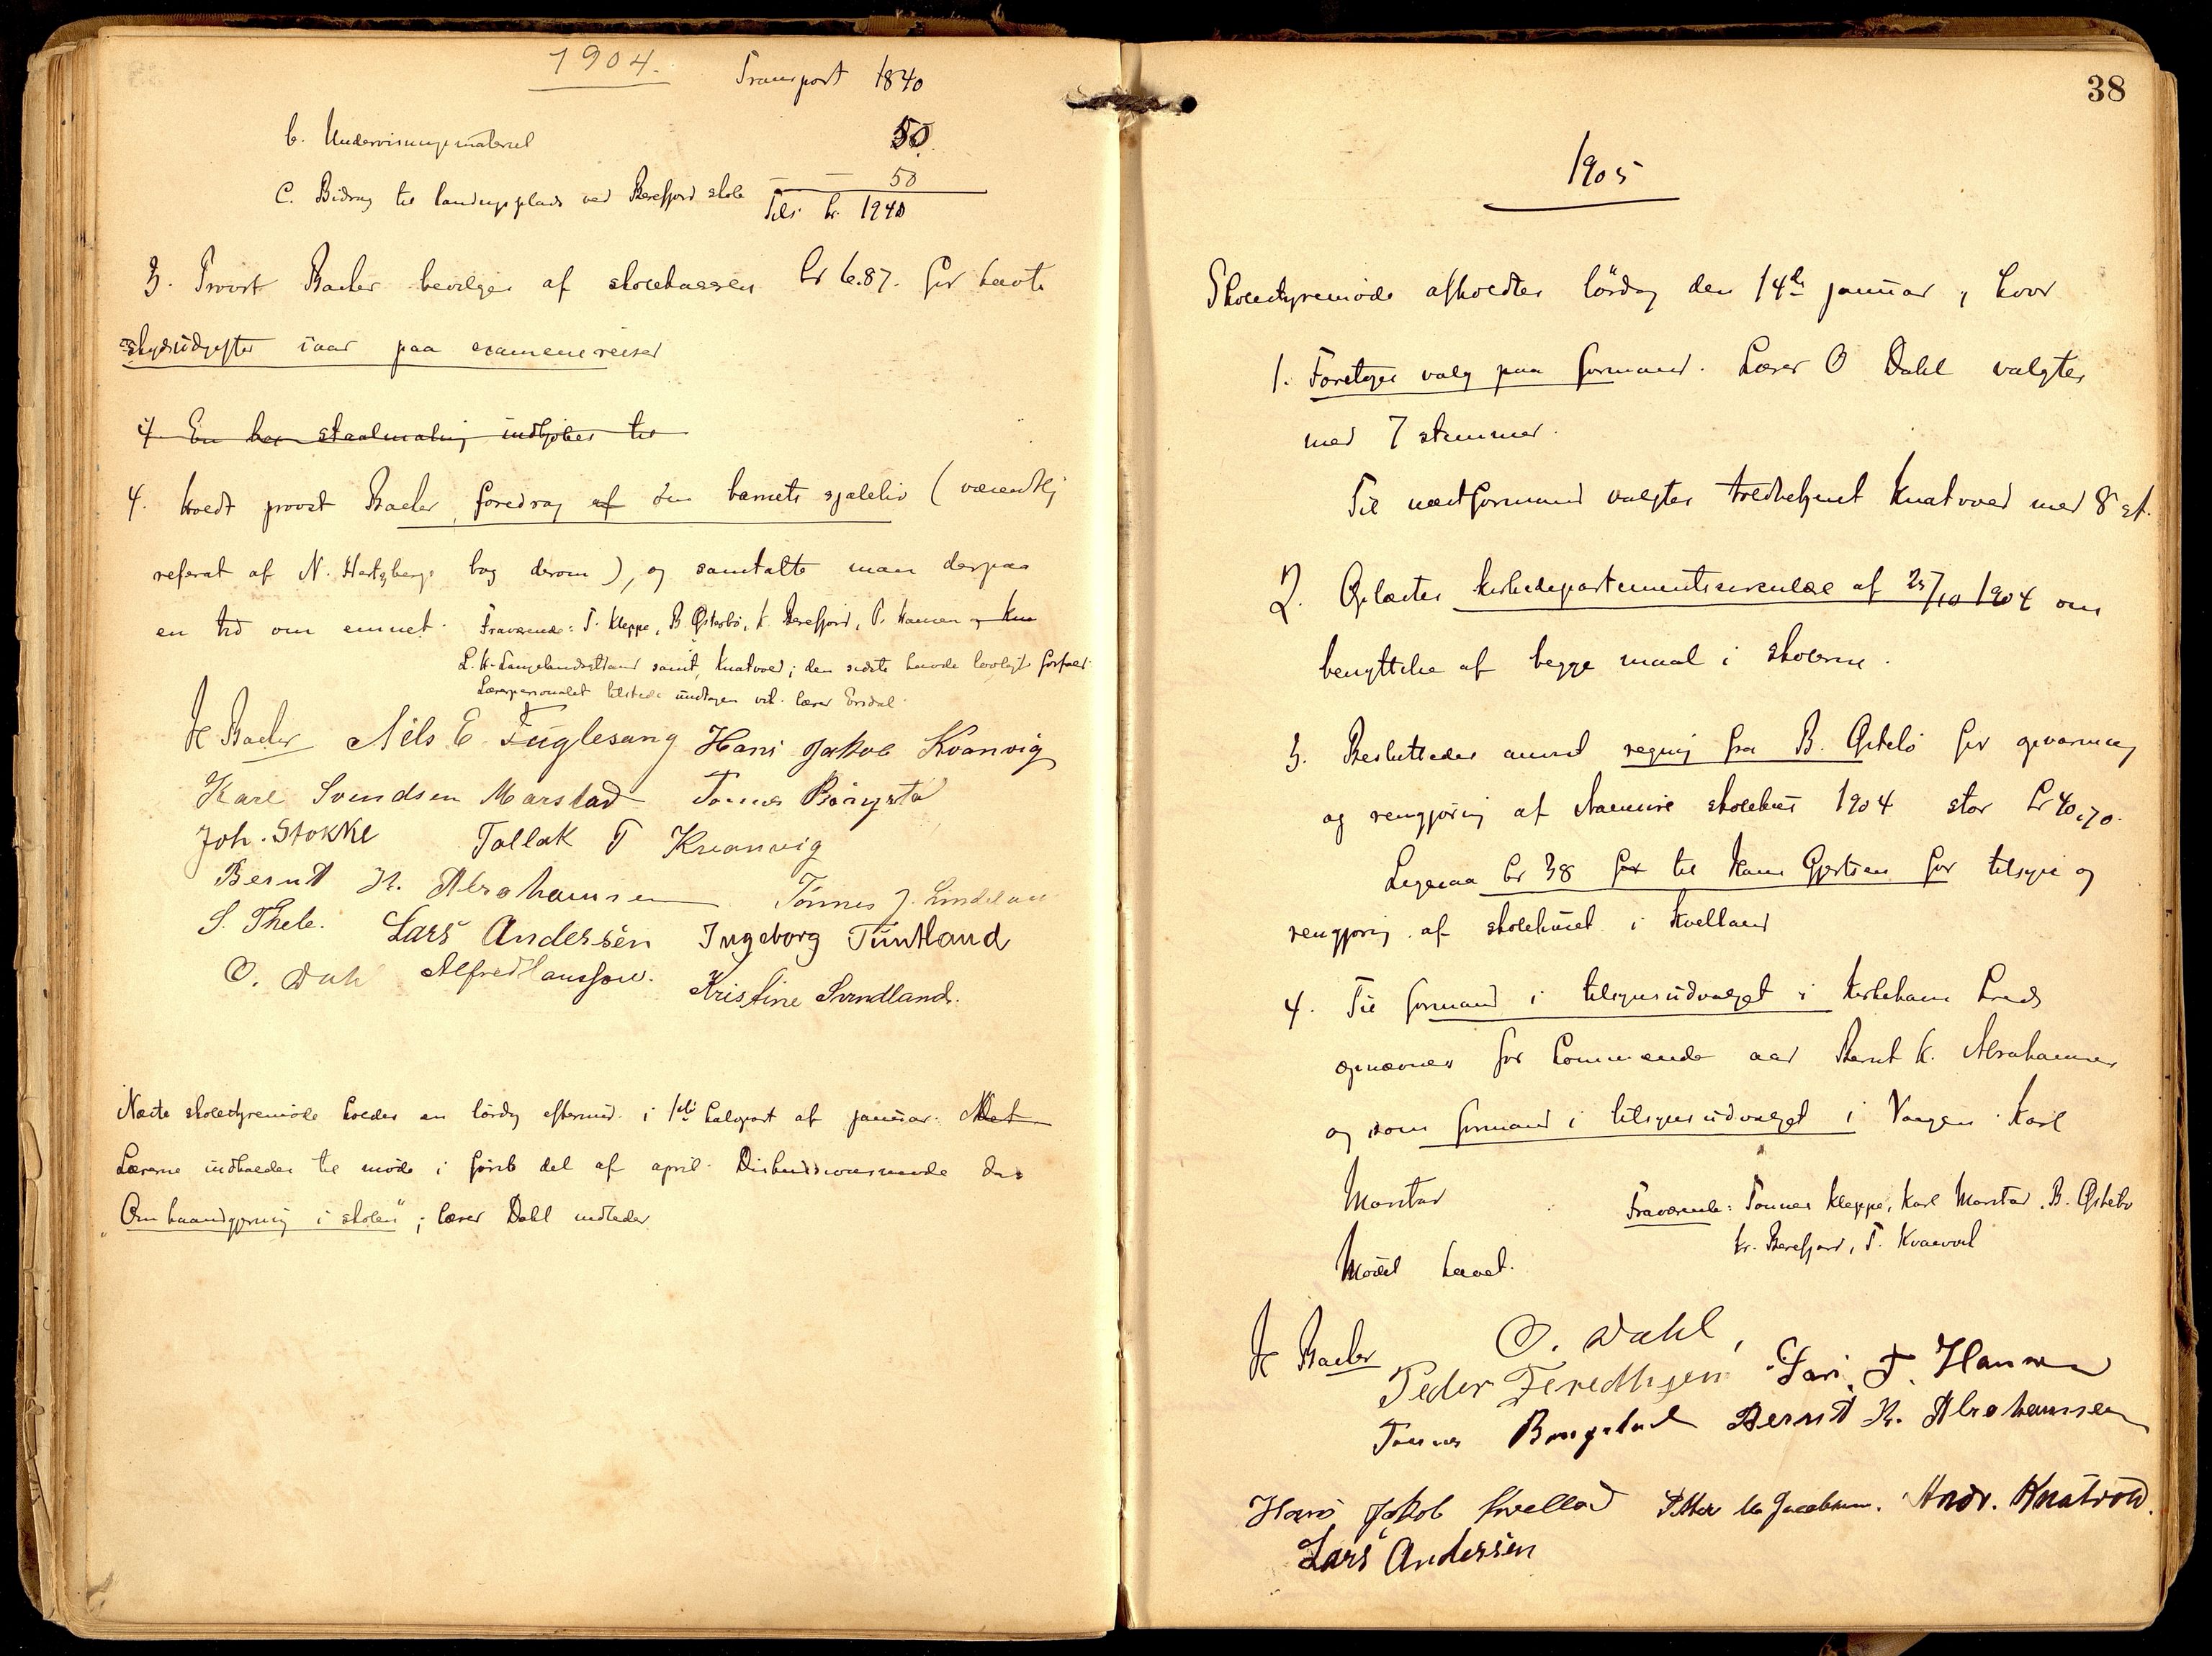 1904.
Transport 1840
b. Undervisningsmateriel 50
C. Bidrag til landingsplads ved Berefjord skole — — 50
Tils. kr 1940
3. Provst Bader bevilges af skolekassen kr 6.87. for havte
skydsudgifter iaar paa examensreiser
4 En staalmaling indkjøbes til
4. Holdt provst Bader foredrag af om barnets sjæleliv (væsentlig
referat af N. Hertzbergs bog derom), og samtalte man derpaa
en tid om emnet. Fraværende: T. Kleppe, B Østebø, K. Berefjord, P. Hansen og Kna
L. H. Langelandsstand samt Knatvold; den sidste havde lovligt forfald.
Lærerpersonalet tilstede undtagen vik. lærer Ersdal.
Bader Nils E Fuglesang Hans Jakob Kvanvig
Karl Svendsen Marstad Tønnes Bangstad
Joh. Stokke Tallak T Kvanvig
Bernt K. Abrahamsen Tönnes J. Lindeland
S. Thele. Lars Andersen Ingeborg Tuntland
O. Dahl Alfred Hanssen. Kristine Svindland.
Næste skolestyremöde holdes en lördag efterm. i 1ste halvpart af januar. Met
Lærerne indkaldes til möde i förste del af april. Diskussionsemne da:
"Om haandgjerning i skolen"; lærer Dahl indleder.
38
1905
Skolestyremöde afholdtes lördag den 14de januar, hvor
1. Foretoges valg paa formand. Lærer O Dahl valgtes
med 7 stemmer.
Til næstformand valgtes Knatvold med 8 st.
2. Oplæstes kirkedepartementscirculære af 25/10 1904 om
benyttelse af begge maal i skolerne.
3. Besluttedes anvist regning fra B. Østebö for opvarming
og rengjøring af skolehus 1904 stor kr 40,70.
Ligesaa kr 38 for til Hans Gjertsen for tilsyn og
rengjöring af skolehuset i Kvelland
4. Til formand i tilsynsudvalget i Kirkehavn kreds
opnævnes for kommende aar Bernt K. Abrahamsen
og som formand i tilsynsudvalget i Vaagen Karl
Marstad
Fraværende: Tønnes Kleppe, Karl Marstad, B. Østebö
Kr. Berefjord, T. Kvanvik
Mödet hævet.
Bader O. Dahl,
Peder Fredhsen Lars T. Hansen
Tønnes Bangstad Bernt K. Abrahamsen
Hans Jakob Kvelland Petter M Jacobsen. Andr. Knatvold.
Lars Andersen